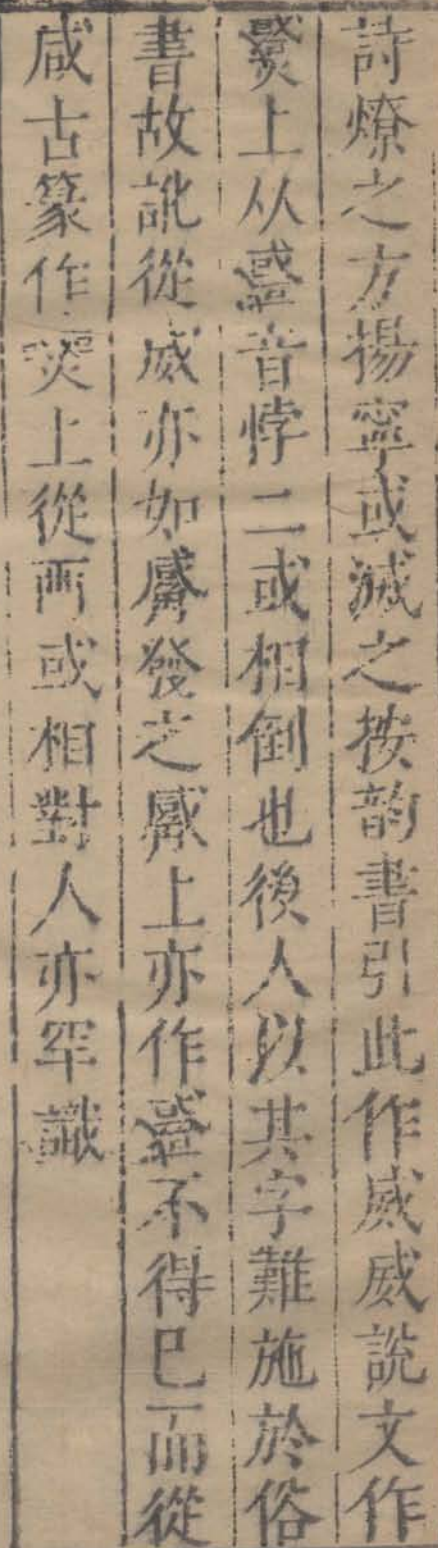 詩燎之方揚寧或滅之按韵書引此作烕烕說文作
上从𢨋音悖二或相倒也後人以其字難施於俗
書故訛從烕亦如觱發之觱上亦作𢨋不得已而從
咸古篆作上從兩或相對人亦罕識